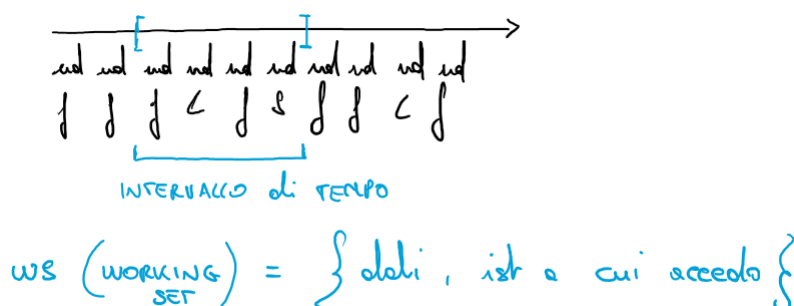 ind ind ind ind ind ind ind ind ind ind
f f f L f S f f L f
INTERVALLO di TEMPO
WS (WORKING SET) = { dati, ist a cui accedo }